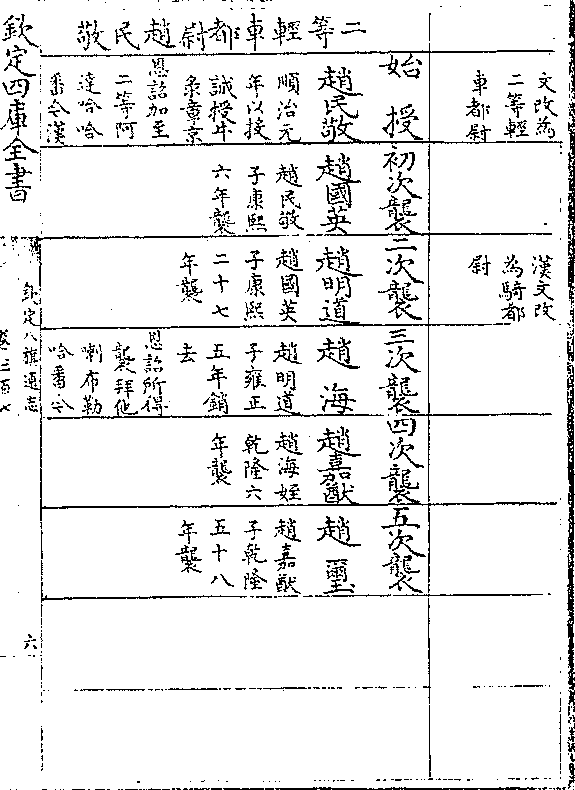 二等輕車都尉趙民敬
文改為
二等輕
車都尉
始授
趙民敬
順治元
年以投
誠授牛
录章京
恩詔加至
二等阿
達哈哈
番今漢
初次襲
趙國英
趙民敬
子康熙
六年襲
漢文改
為騎都
尉
二次襲
趙明道
趙國英
子康熙
二十七
年襲
三次襲
趙海
趙明道
子雍正
五年銷
去
恩詔所得
襲拜他
喇布勒
哈番今
四次襲
趙嘉猷
趙海姪
乾隆六
年襲
五次襲
趙璽
趙嘉猷
子乾隆
五十八
年襲
欽定四庫全書
欽定八旗通志
六